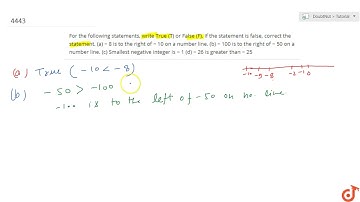 4443
doubtnut > Tutorial
For the following statements, write True (T) or False (F). If the statement is false, correct the
statement. (a) − 8 is to the right of − 10 on a number line. (b) − 100 is to the right of − 50 on a
number line. (c) Smallest negative integer is − 1 (d) − 26 is greater than − 25
(a) True (-10 < -8)
-10 -9 -8 -2 -1 0
(b) -50 > -100
-100 is to the left of -50 on no. line